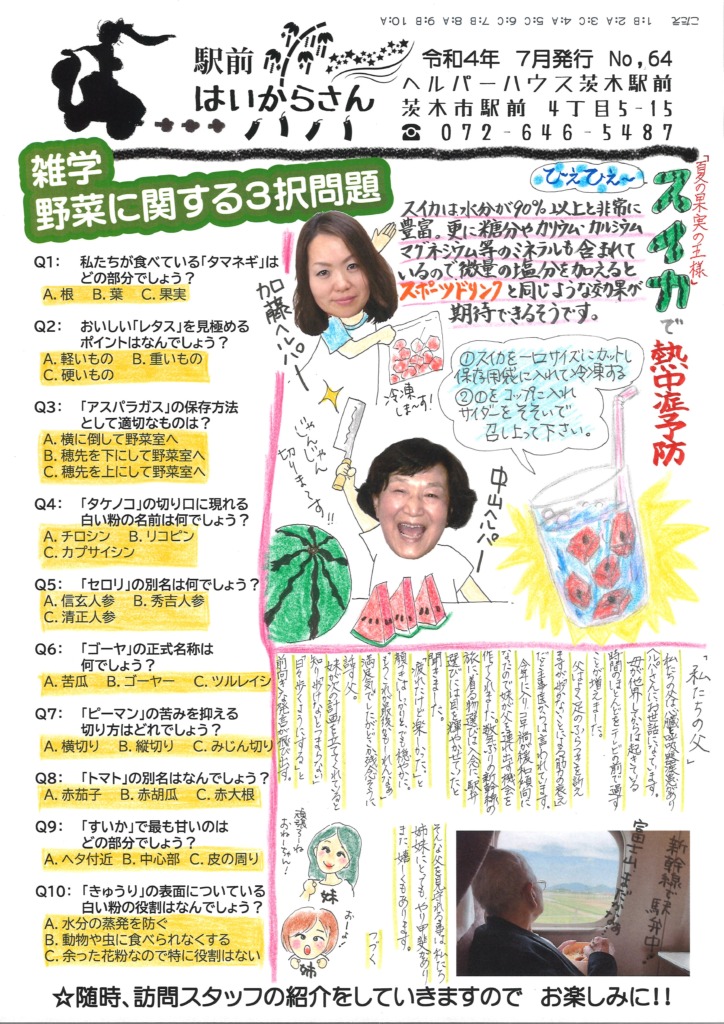 こたえ 1:B 2:A 3:C 4:A 5:C 6:C 7:B 8:A 9:B 10:A
駅前
はいからさん
令和4年 7月発行 No,64
ヘルパーハウス茨木駅前
茨木市駅前 4丁目5-15
☎ 072-646-5487
雑学
野菜に関する3択問題
Q1: 私たちが食べている「タマネギ」は
どの部分でしょう?
A. 根 B. 葉 C. 果実
Q2: おいしい「レタス」を見極める
ポイントはなんでしょう?
A. 軽いもの B. 重いもの
C. 硬いもの
Q3: 「アスパラガス」の保存方法
として適切なものは?
A. 横に倒して野菜室へ
B. 穂先を下にして野菜室へ
C. 穂先を上にして野菜室へ
Q4: 「タケノコ」の切り口に現れる
白い粉の名前は何でしょう?
A. チロシン B. リコピン
C. カプサイシン
Q5: 「セロリ」の別名は何でしょう?
A. 信玄人参 B. 秀吉人参
C. 清正人参
Q6: 「ゴーヤ」の正式名称は
何でしょう?
A. 苦瓜 B. ゴーヤー C. ツルレイシ
Q7: 「ピーマン」の苦みを抑える
切り方はどれでしょう?
A. 横切り B. 縦切り C. みじん切り
Q8: 「トマト」の別名はなんでしょう?
A. 赤茄子 B. 赤胡瓜 C. 赤大根
Q9: 「すいか」で最も甘いのは
どの部分でしょう?
A. ヘタ付近 B. 中心部 C. 皮の周り
Q10: 「きゅうり」の表面についている
白い粉の役割はなんでしょう?
A. 水分の蒸発を防ぐ
B. 動物や虫に食べられなくする
C. 余った花粉なので特に役割はない
「夏の果実の王様」
スイカで熱中症予防
ひえひえ〜
スイカは水分が90%以上と非常に
豊富。更に糖分やカリウム・カルシウム
マグネシウム等のミネラルも含まれて
いるので微量の塩分を加えると
スポーツドリンクと同じような効果が
期待できるそうです。
加藤ヘルパー
冷凍
しま〜す!
①スイカを一口サイズにカットし
保存用袋に入れて冷凍する
②①をコップに入れ
サイダーをそそいで
召し上って下さい。
じゃんじゃん
切りま〜す!!
中山ヘルパー
「私たちの父」
私たちの父は心臓と呼吸器に患いあり
ヘルパーさんにお世話になっています。
母が他界してからは起きている
時間のほとんどをテレビの前で過す
ことが増えました。
今年に入りコロナ禍が緩和傾向に
なったので妹が父を連れ出す機会を
作ってくれました。数年ぶりの新幹線の
聞きました。
「疲れたけど楽しかった」と
話す父。
妹が次の計画を立ててくれていると
前向きな発言が飛び出す。
そんな父を見守れる事は、私たち
姉妹にとってもやり甲斐があり
また、嬉しくもあります。
つづく
頑張ろーね
おねーちゃん!
妹
おーよ!
姉
新幹線で駅弁中!
富士山まだかなぁ
☆随時、訪問スタッフの紹介をしていきますので お楽しみに!!